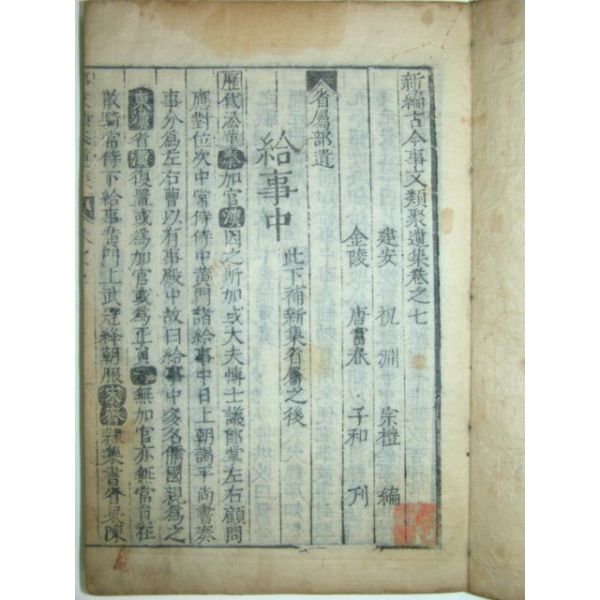 新編古今事文類聚遺集卷之七
建安 祝 淵 宗禮 編
金陵 唐富春 子和 刊
省屬部遺
給事中 此下補新集省屬之後
歷代沿革 秦加官漢因之所加或大夫博士議郎掌左右顧問
應對位次中常侍侍中黃門諸給事中日上朝謁平尚書奏
事分為左右曹以有事殿中故曰給事中多名儒國親為之
東漢省魏復置或為加官或為正員 無加官亦無常員在
散騎常侍下給事黃門上武冠絳朝服 隸集書省梁陳